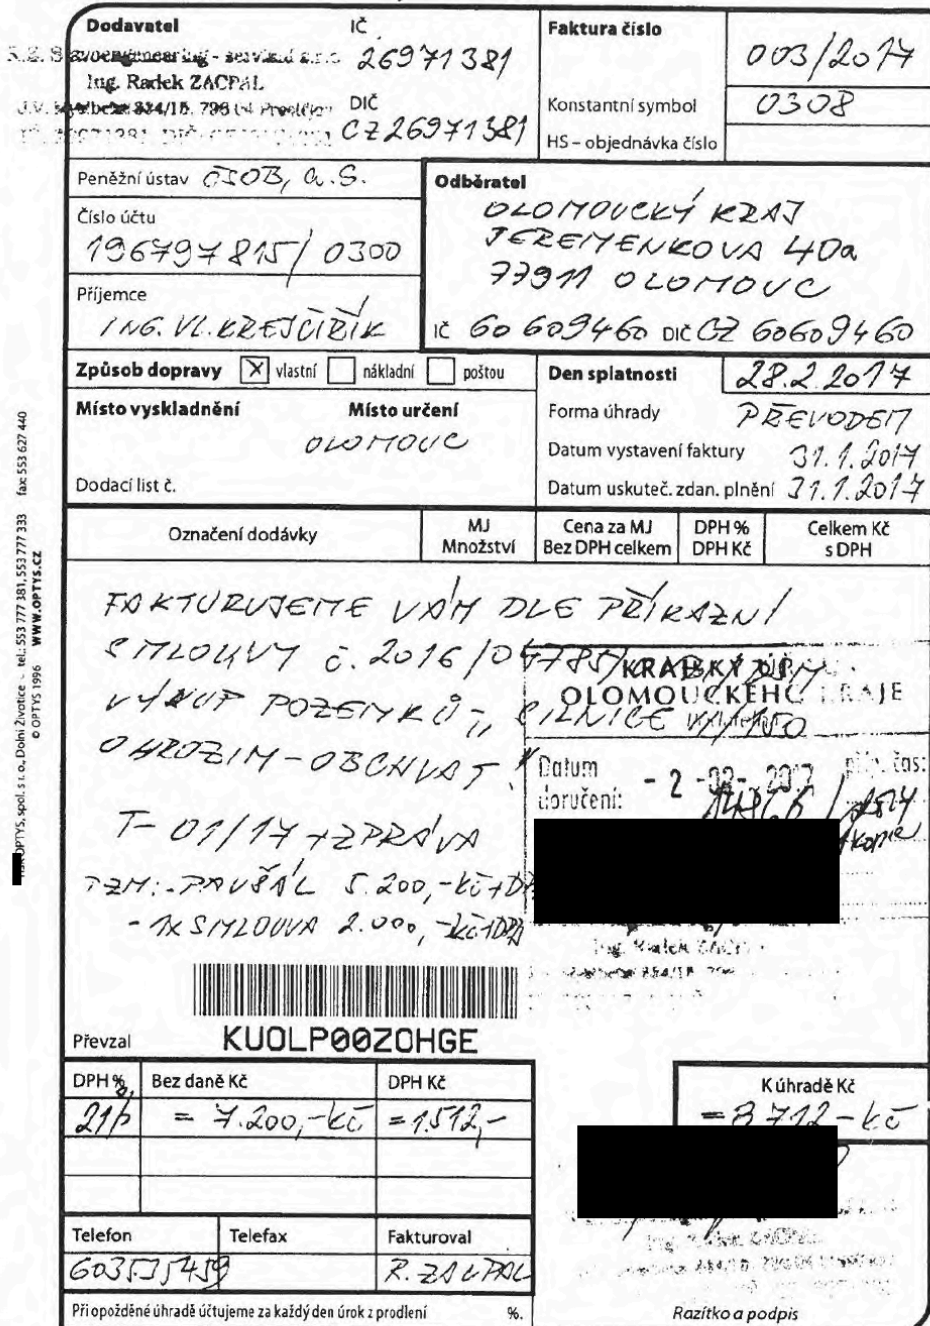 Dodavatel
IČ
26971381
Ing. Radek ZACPAL
DIČ
CZ26971381
Faktura číslo
003/2017
Konstantní symbol
0308
HS – objednávka číslo
Peněžní ústav ČSOB, a.s.
Číslo účtu
196797815/0300
Příjemce
ING. VL. KREJČIŘÍK
Odběratel
OLOMOUCKÝ KRAJ
JEREMENKOVA 40a
77911 OLOMOUC
IČ 60609460 DIČ CZ 60609460
Způsob dopravy X vlastní nákladní poštou
Místo vyskladnění
Místo určení
OLOMOUC
Dodací list č.
Den splatnosti 28.2.2017
Forma úhrady PŘEVODEM
Datum vystavení faktury 31.1.2017
Datum uskuteč. zdan. plnění 31.1.2017
Označení dodávky
MJ
Množství
Cena za MJ
Bez DPH celkem
DPH %
DPH Kč
Celkem Kč
s DPH
FAKTURUJEME VÁM DLE PŘÍKAZNÍ
SMLOUVY č. 2016/04785/
VÝKUP POZEMKŮ - SILNICE
OHROZIM - OBCHVAT
T- 01/17 + ZPRÁVA
PZM: - PAUŠÁL 5.200,-Kč + DPH
- 1x SMLOUVA 2.000,-Kč + DPH
KRAJSKÝ ÚŘAD
OLOMOUCKÉHO KRAJE
Datum
doručení:
- 2 -02- 2017
čas:
kopie
KUOLP00ZOHGE
Převzal
DPH %
Bez daně Kč
DPH Kč
21%
= 7.200,-Kč
= 1.512,-
K úhradě Kč
= 8 712 - Kč
Telefon
603535459
Telefax
Fakturoval
R. ZACPAL
Při opožděné úhradě účtujeme za každý den úrok z prodlení %.
Razítko a podpis
OPTYS, spol. s r. o., Dolní Životice tel.: 553 777 381, 553 777 333 fax: 553 627 440
© OPTYS 1996 WWW.OPTYS.CZ